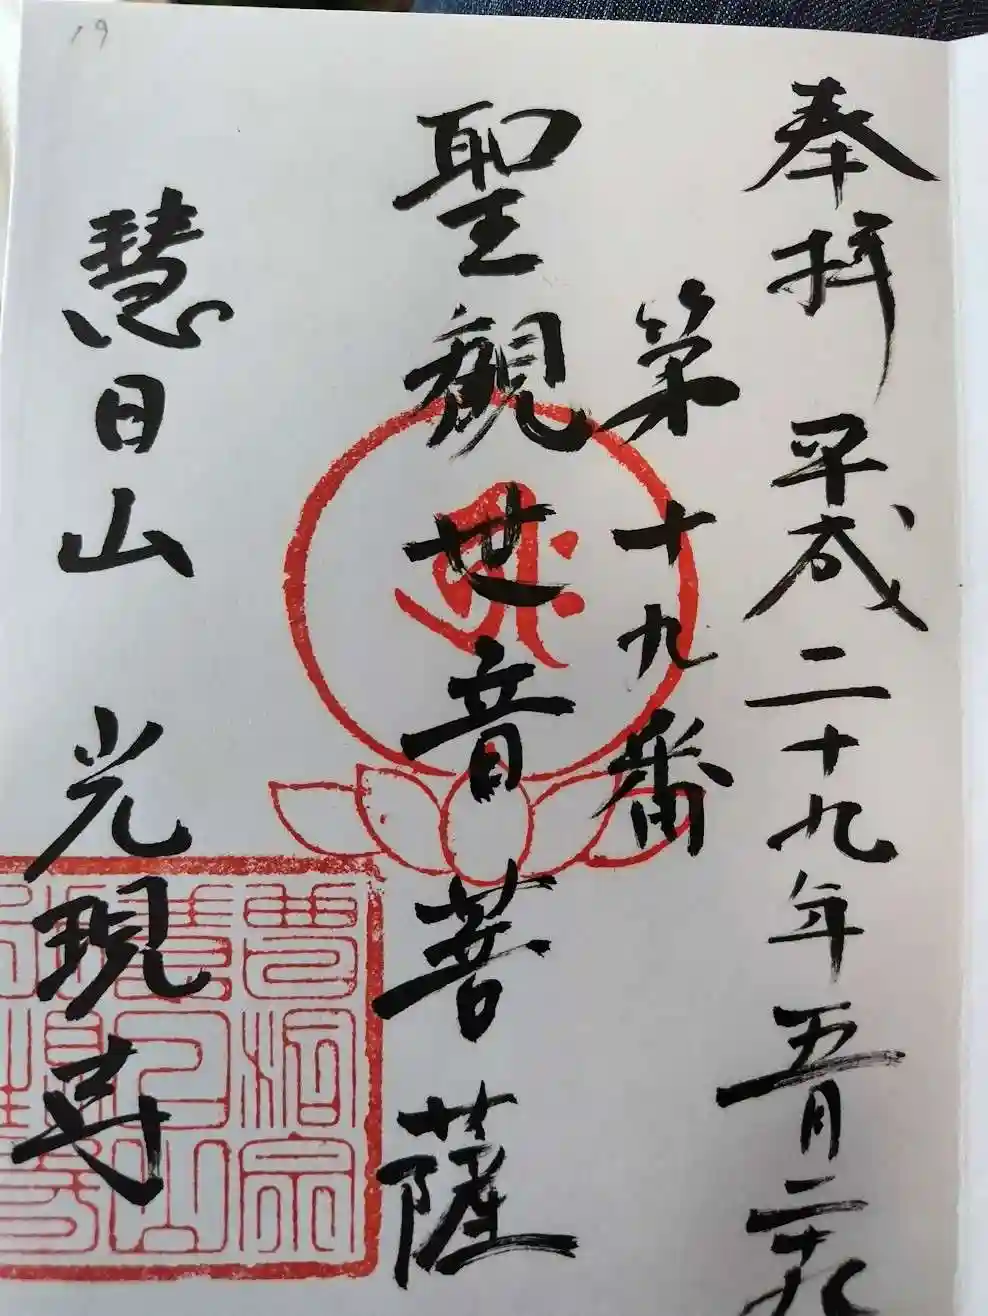 19
奉拝 平成二十九年五月二十九
第十九番
聖観世音菩薩
慧日山 光現寺